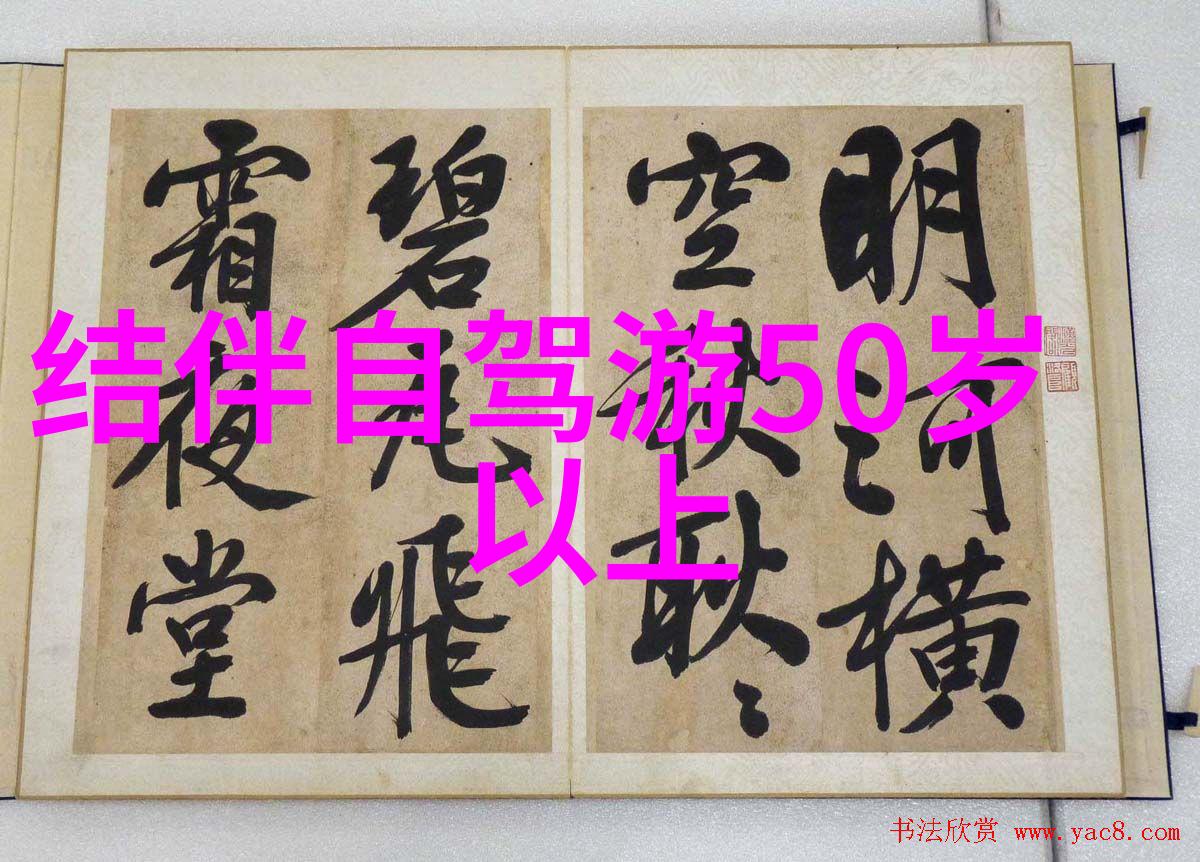 明河横
空秋耿〻
碧瓦飛
霜夜堂
结伴自驾游50岁
以上
书法欣赏 www.yac8.com